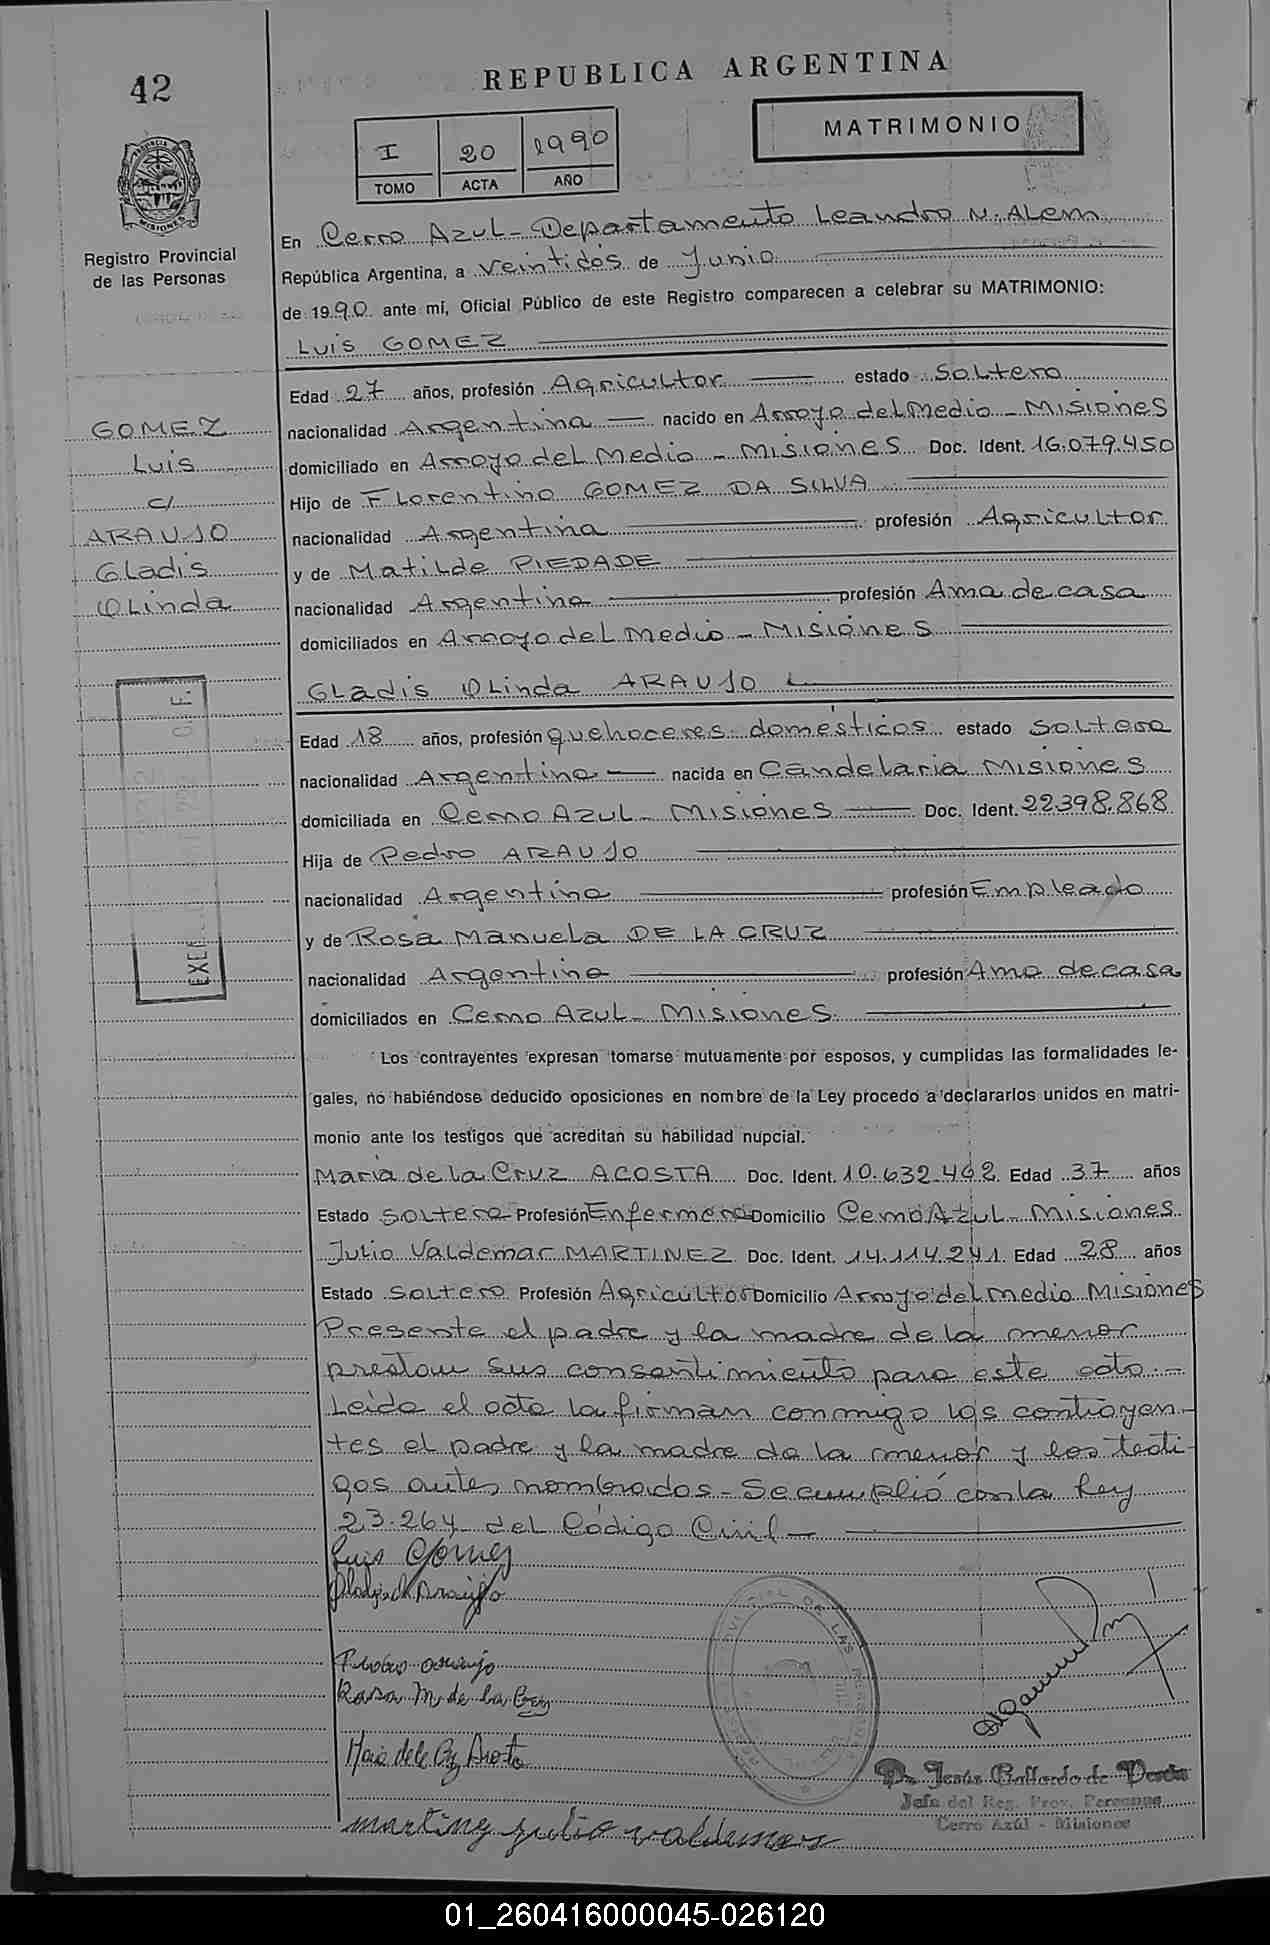 42
REPUBLICA ARGENTINA
I 20 1990
TOMO ACTA AÑO
MATRIMONIO
MISIONES
Registro Provincial
de las Personas
En Cerro Azul - Departamento Leandro N. Alem
República Argentina, a veintidós de Junio
de 1990 ante mí, Oficial Público de este Registro comparecen a celebrar su MATRIMONIO:
Luis GOMEZ
Edad 27 años, profesión Agricultor estado Soltero
nacionalidad Argentina nacido en Arroyo del Medio - Misiones
domiciliado en Arroyo del Medio - Misiones Doc. Ident. 16.079.450
Hijo de Florentino GOMEZ DA SILVA
nacionalidad Argentina profesión Agricultor
y de Matilde PIEDADE
nacionalidad Argentina profesión Ama de casa
domiciliados en Arroyo del Medio - Misiones
GOMEZ
Luis
c/
ARAUJO
Gladis
Olinda
Gladis Olinda ARAUJO
Edad 18 años, profesión quehaceres domésticos estado Soltera
nacionalidad Argentina nacida en Candelaria Misiones
domiciliada en Cerro Azul - Misiones Doc. Ident. 22.398.868
Hija de Pedro ARAUJO
nacionalidad Argentina profesión Empleado
y de Rosa Manuela DE LA CRUZ
nacionalidad Argentina profesión Ama de casa
domiciliados en Cerro Azul - Misiones
Los contrayentes expresan tomarse mutuamente por esposos, y cumplidas las formalidades le-
gales, no habiéndose deducido oposiciones en nombre de la Ley procedo a declararlos unidos en matri-
monio ante los testigos que acreditan su habilidad nupcial.
María de la Cruz ACOSTA Doc. Ident. 10.632.462 Edad 37 años
Estado Soltera Profesión Enfermera Domicilio Cerro Azul - Misiones
Julio Valdemar MARTINEZ Doc. Ident. 14.114.241 Edad 28 años
Estado Soltero Profesión Agricultor Domicilio Arroyo del Medio Misiones
Presente el padre y la madre de la menor
prestan sus consentimiento para este acto.-
Leida el acta la firman conmigo los contrayen-
tes el padre y la madre de la menor y los testi-
gos antes nombrados - Se cumplió con la Ley
23.264 del Código Civil -
Luis Gomez
Gladis O. Araujo
Pedro Araujo
Rosa M. de la Cruz
Maria de la Cruz Acosta
martinez julio valdemar
Jesús Gallardo de
Jefe del Reg. Prov. Personas
Cerro Azúl - Misiones
01_260416000045-026120